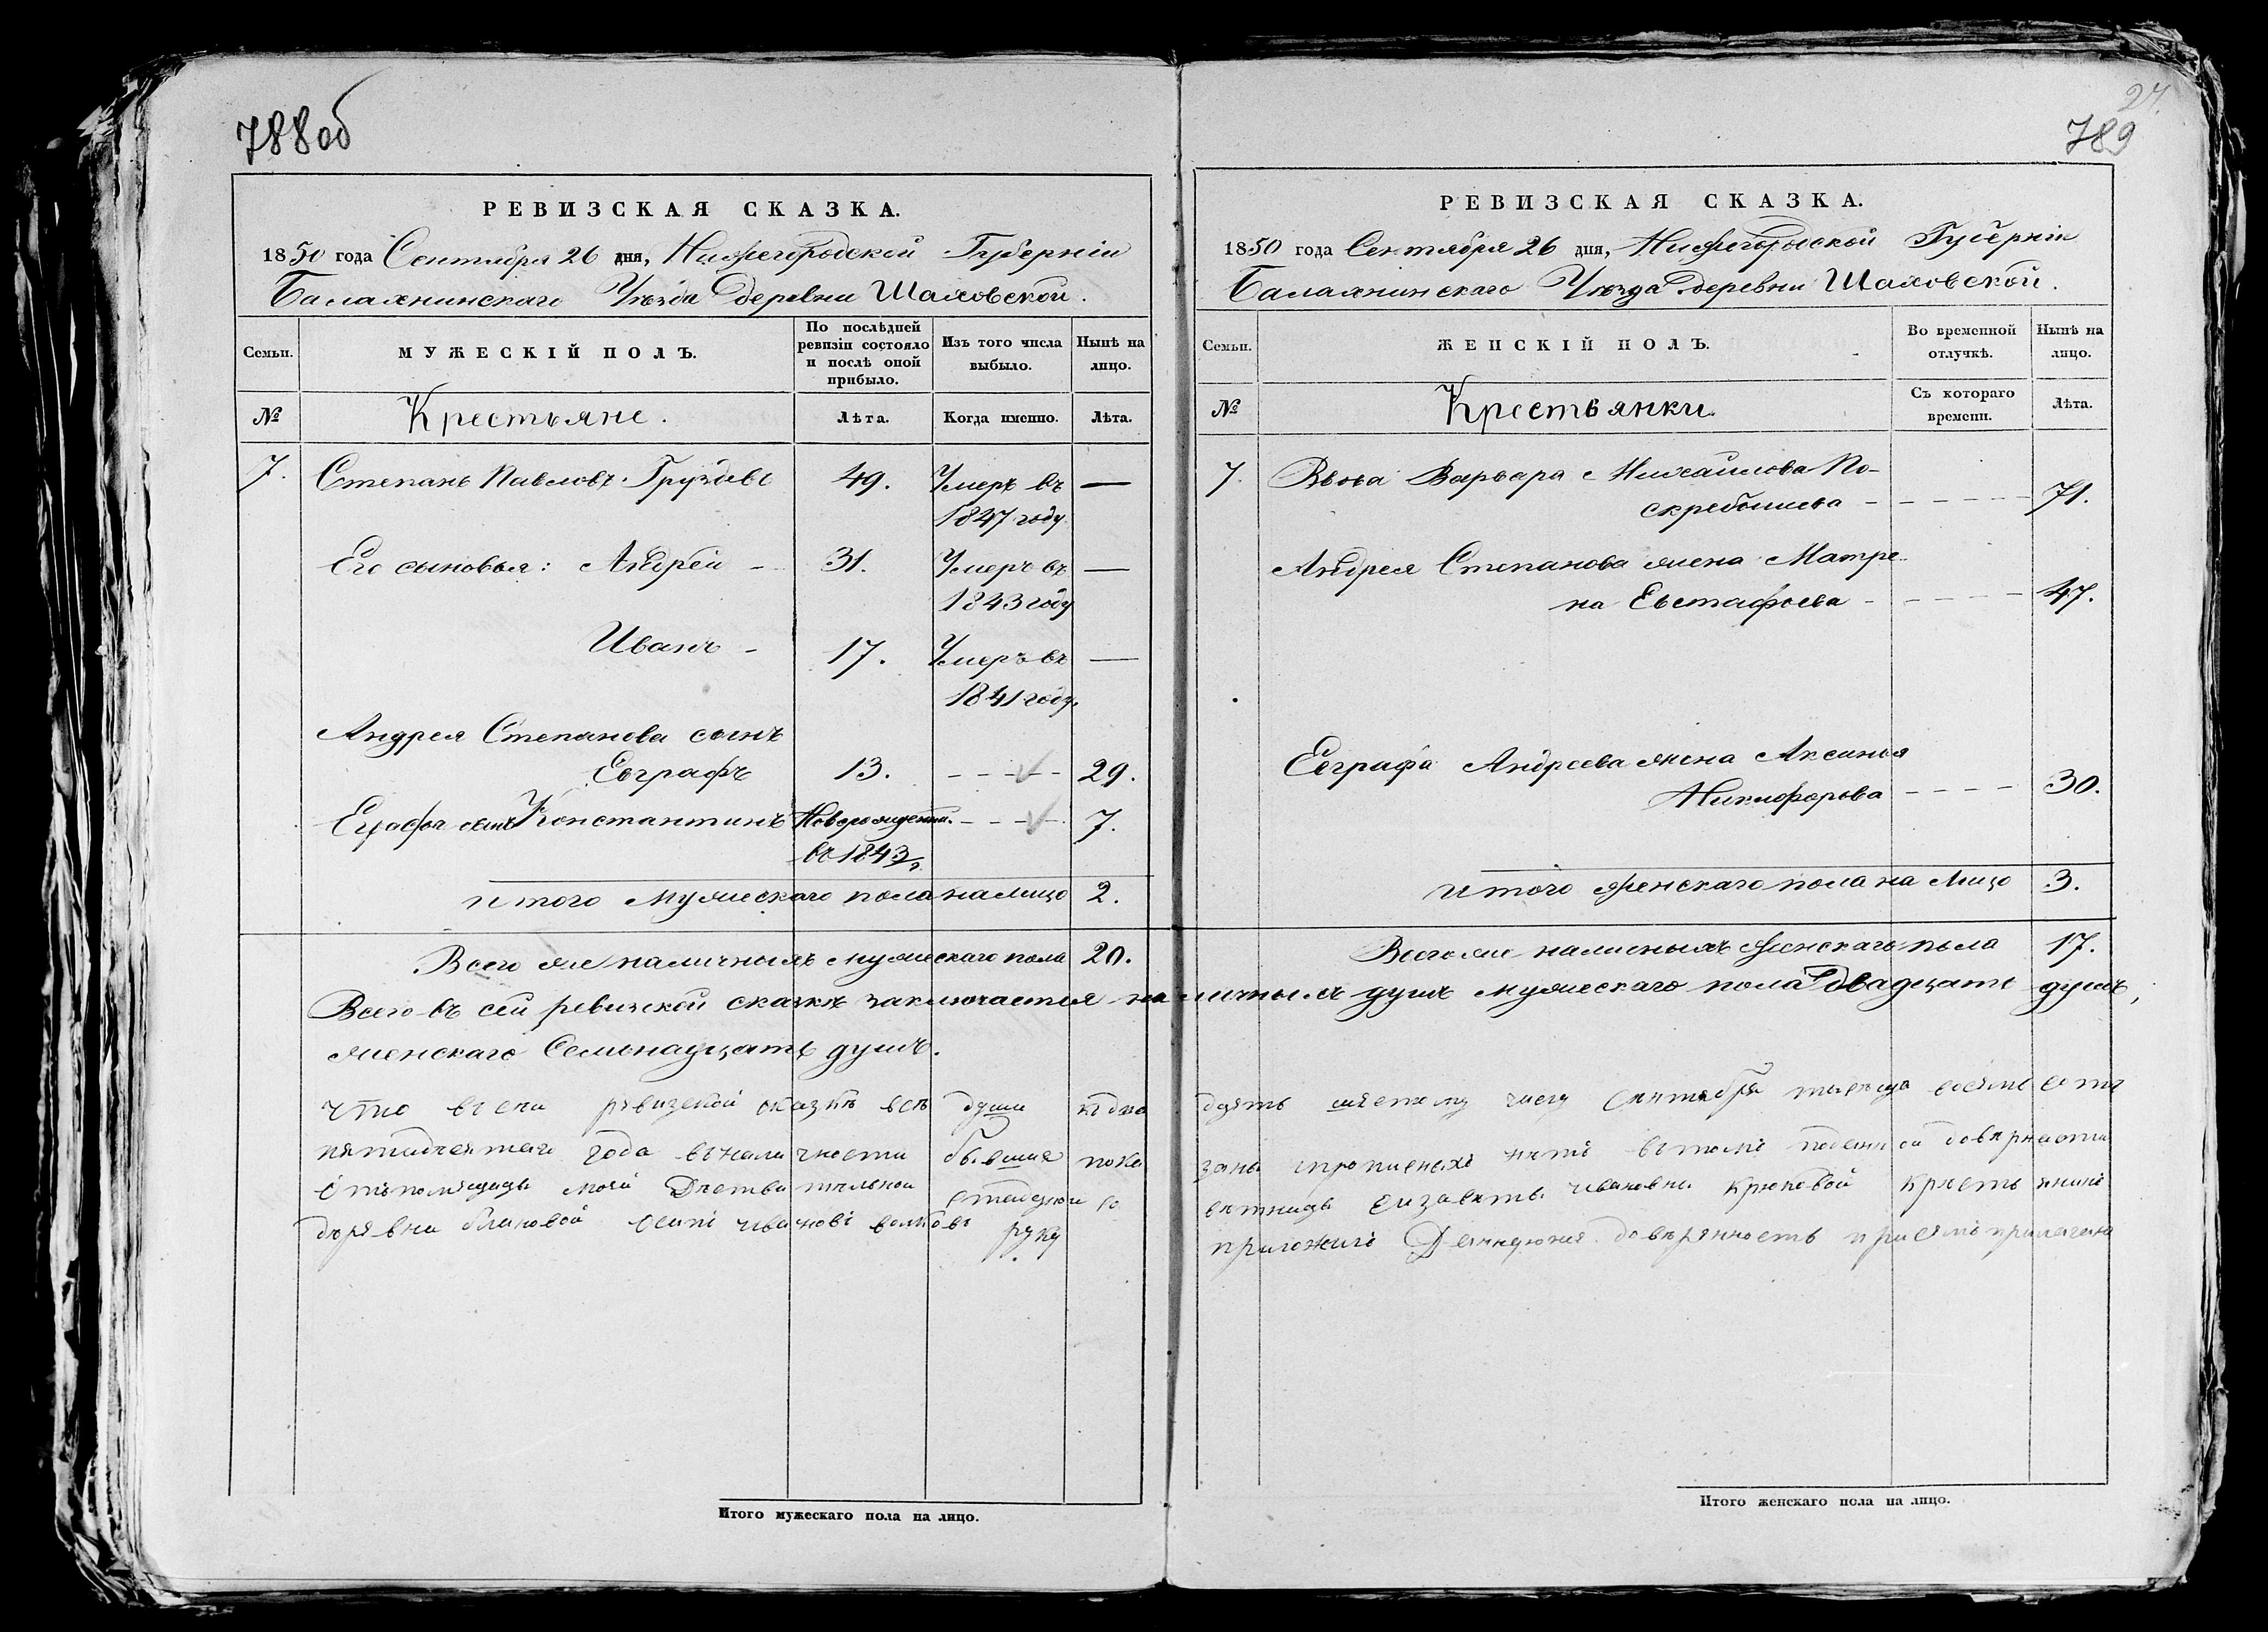 788об
РЕВИЗСКАЯ СКАЗКА.
1850 года Сентября 26 дня, Нижегородской Губерніи
Балахнинскаго Уѣзда деревни Шаховской.
Семьи.
МУЖЕСКІЙ ПОЛЪ.
По послѣдней ревизіи состояло и послѣ оной прибыло.
Изъ того числа выбыло.
Нынѣ на лицо.
№
Крестьяне.
Лѣта.
Когда именно.
Лѣта.
7. Степанъ Павловъ Груздевъ 49. Умеръ въ —
1847 году.
Его сыновья: Андрей - 31. Умеръ въ —
1843 году
Иванъ - 17. Умеръ въ —
1841 году.
Андрея Степанова сынъ
Евграфъ 13. - - - - 29.
сынъ Константинъ Новорожденн. - - - 7.
въ 1843
Итого мужескаго пола на лицо 2.
Всего же наличныхъ мужескаго пола 20.
27.
789
РЕВИЗСКАЯ СКАЗКА.
1850 года Сентября 26 дня, Нижегородской Губерніи
Балахнинскаго Уѣзда деревни Шаховской.
Семьи.
ЖЕНСКІЙ ПОЛЪ.
Во временной отлучкѣ.
Нынѣ на лицо.
№
Крестьянки.
Съ котораго времени.
Лѣта.
7. Вдова Варвара Михайлова По-
скребышева - - - - - 71.
Андрея Степанова жена Матре-
на Евстафьева - - - - - 47.
Евграфа Андреева жена Аксинья
Никифорова - - - - 30.
Итого женскаго пола на лицо 3.
Всего же наличныхъ женскаго пола 17.
Всего въ сей ревизской сказкѣ заключается наличныхъ душъ мужескаго пола двадцать душъ,
женскаго Семьнадцать душъ.
Что въ сеи ревизской сказкѣ всѣ души къ два дцять шестому числу сентября месяца восемь сотъ
пятидесятаго года въ наличности бывшие пока заны и прописныхъ нетъ въ томъ
отъ помещицы моей елизаветы ивановны крюковой крестьянинъ
деревни осипъ ивановъ волковъ руку приложилъ доверенность при семъ прилагена
Итого мужескаго пола на лицо.
Итого женскаго пола на лицо.